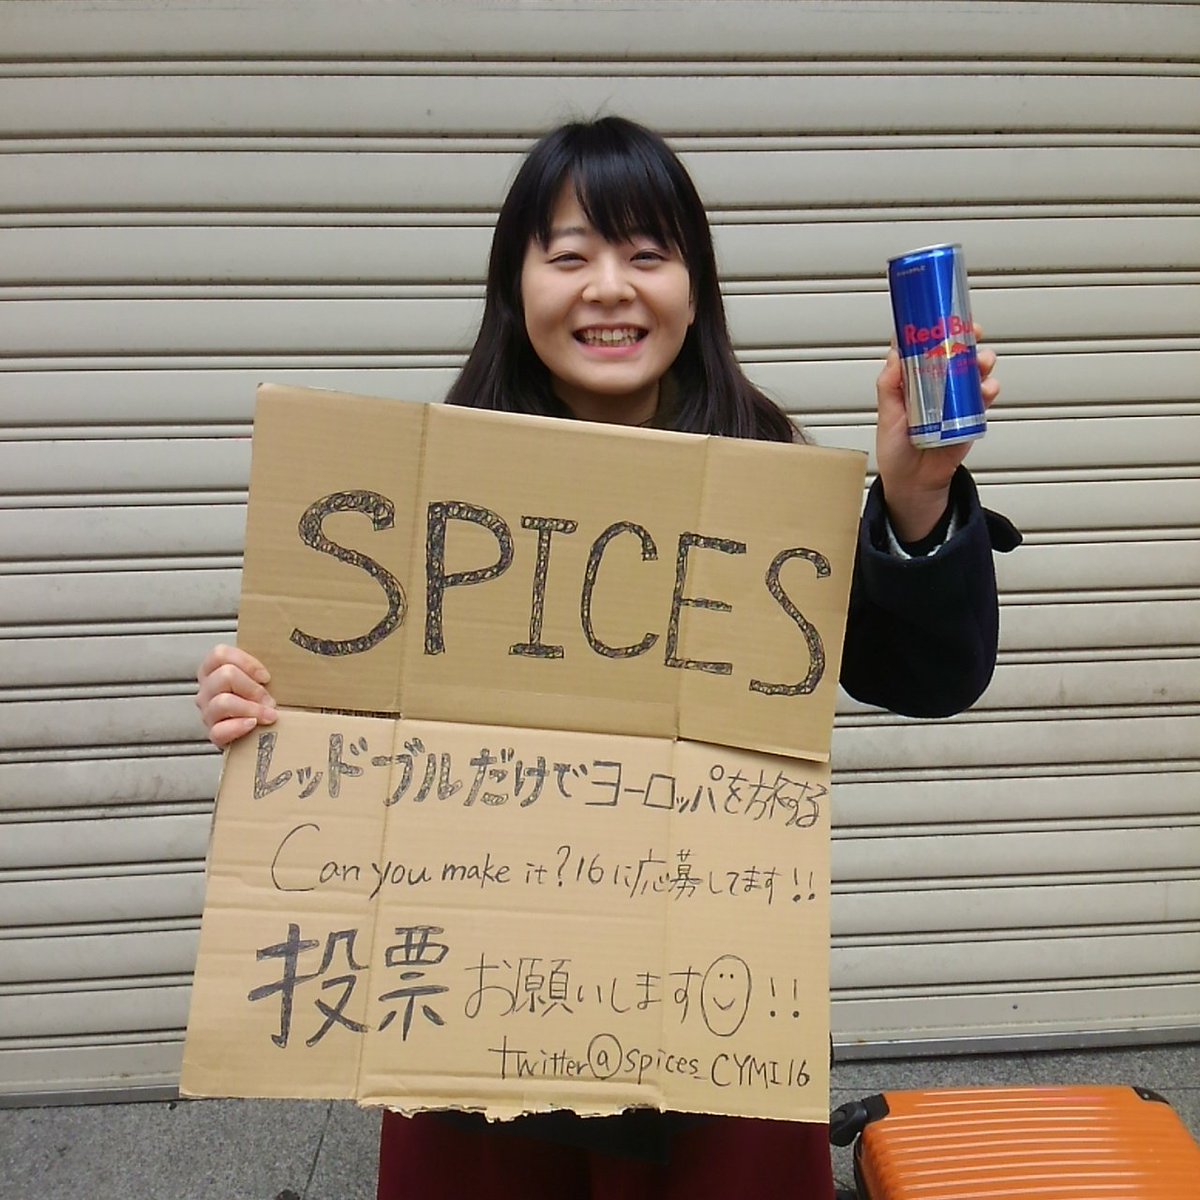 SPICES
レッドーブルだけでヨーロッパを旅する
Can you make it?16に応募してます!!
投票お願いします!!
twitter@spices_CYMI16
Red Bull